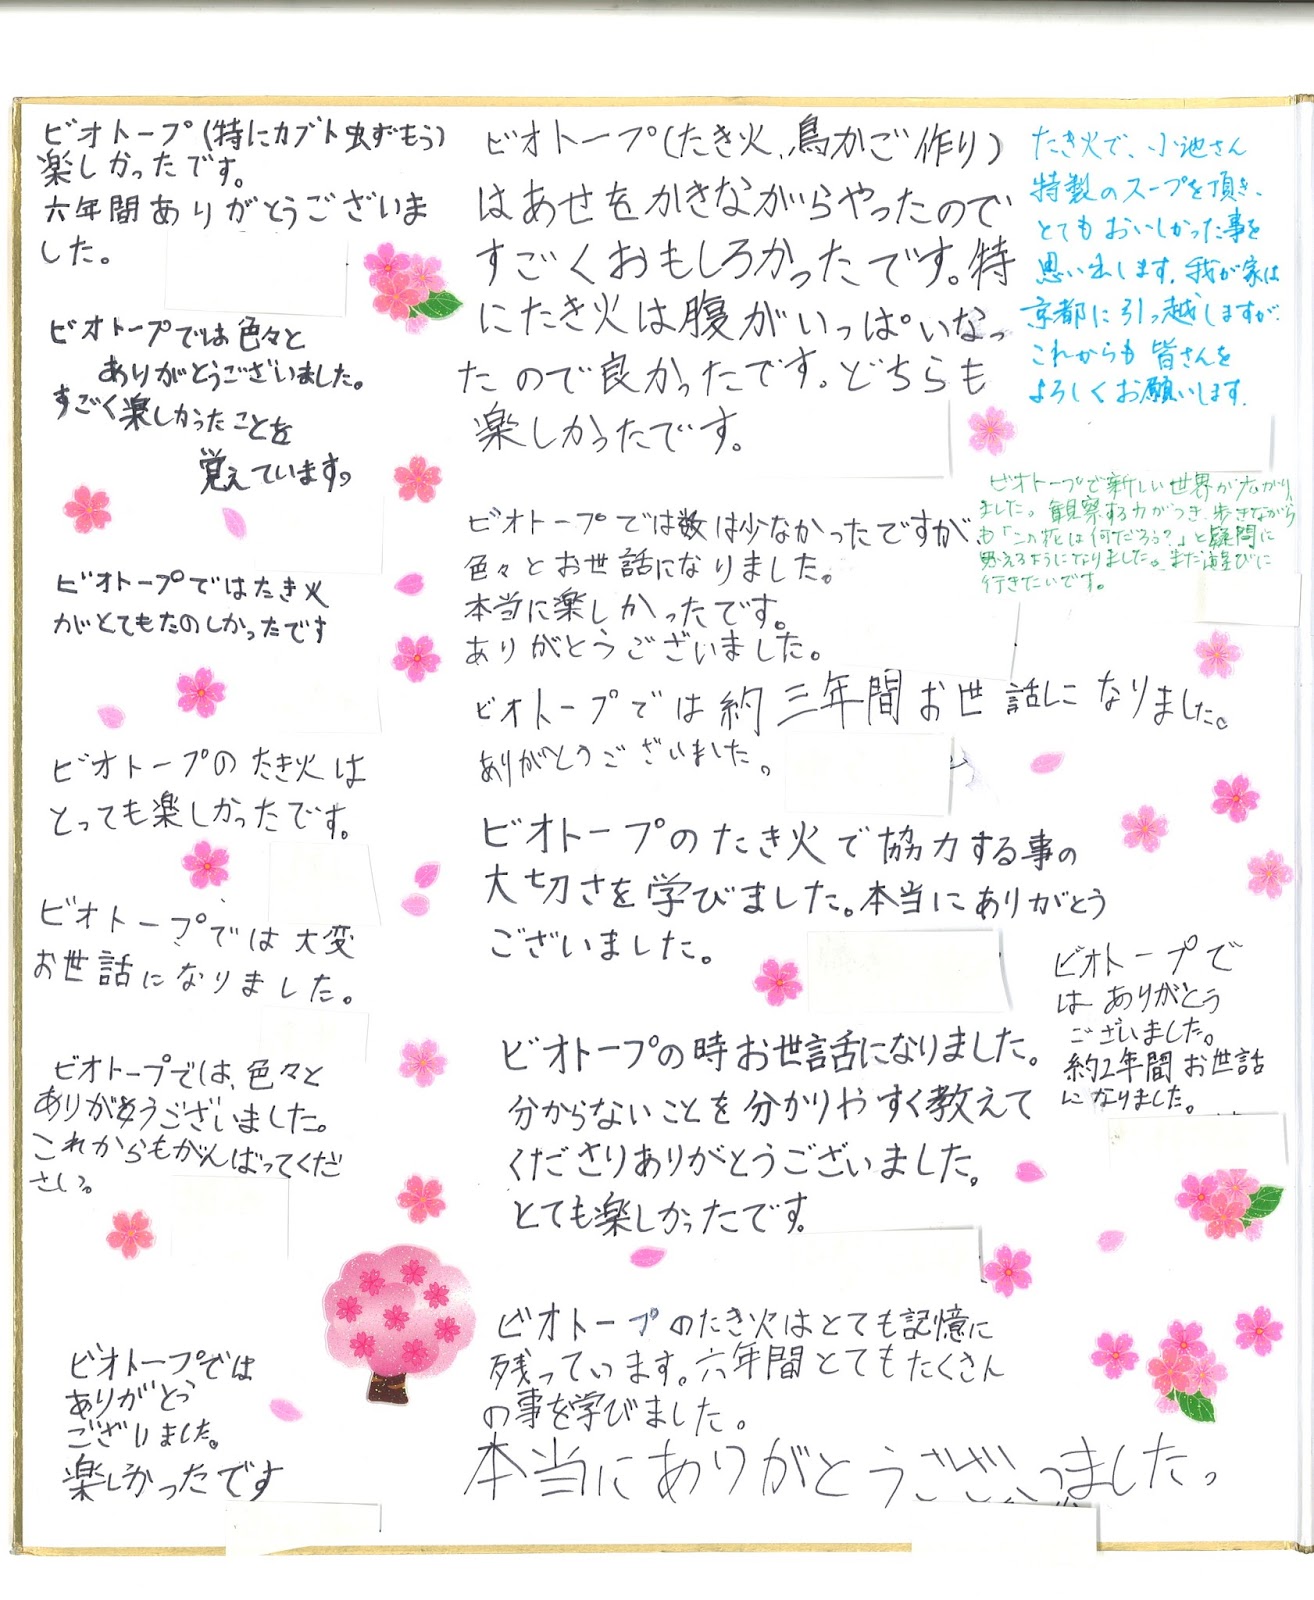 ビオトープ(特にカブト虫ずもう)
楽しかったです。
六年間ありがとうございま
した。
ビオトープでは色々と
ありがとうございました。
すごく楽しかったことを
覚えています。
ビオトープではたき火
がとてもたのしかったです
ビオトープのたき火は
とっても楽しかったです。
ビオトープでは大変
お世話になりました。
ビオトープでは、色々と
ありがとうございました。
これからもがんばってくだ
さい。
ビオトープでは
ありがとう
ございました。
楽しかったです
ビオトープ(たき火、鳥かご作り)
はあせをかきながらやったので
すごくおもしろかったです。特
にたき火は腹がいっぱいなっ
たので良かったです。どちらも
楽しかったです。
ビオトープでは数は少なかったですが、
色々とお世話になりました。
本当に楽しかったです。
ありがとうございました。
ビオトープでは約三年間お世話になりました。
ありがとうございました。
ビオトープのたき火で協力する事の
大切さを学びました。本当にありがとう
ございました。
ビオトープの時お世話になりました。
分からないことを分かりやすく教えて
くださりありがとうございました。
とても楽しかったです。
ビオトープのたき火はとても記憶に
残っています。六年間とてもたくさん
の事を学びました。
本当にありがとうございました。
たき火で、小池さん
特製のスープを頂き、
とてもおいしかった事を
思い出します。我が家は
京都に引っ越しますが、
これからも皆さんを
よろしくお願いします。
ビオトープで新しい世界が広がり
ました。観察する力がつき、歩きながら
も「この花は何だろう?」と疑問に
思えるようになりました。また遊びに
行きたいです。
ビオトープで
はありがとう
ございました。
約2年間お世話
になりました。